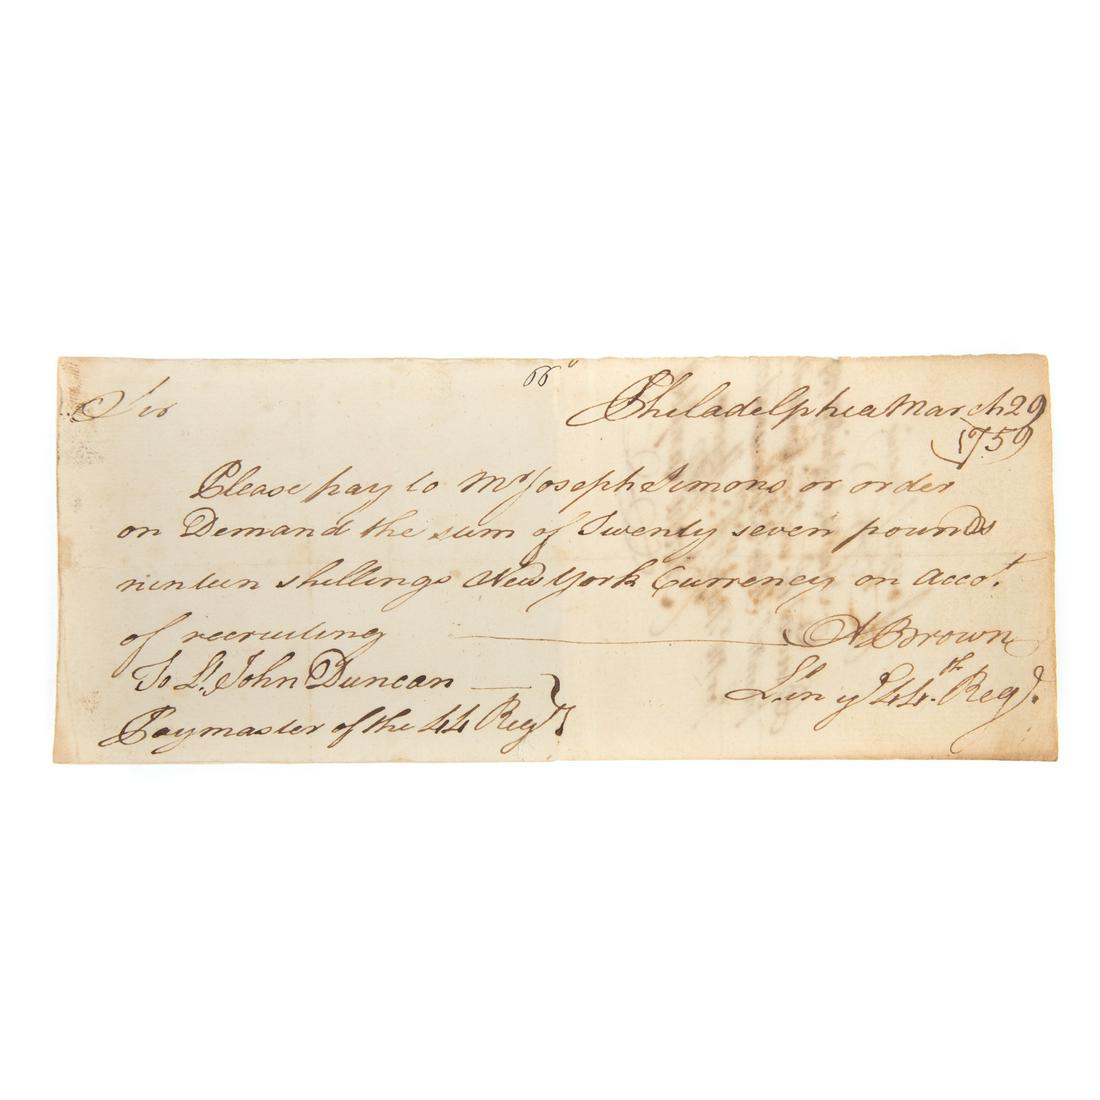 66
Sir Philadelphia March 29
1759
Please pay to Mr Joseph Simons or order
on Demand the sum of Twenty seven pounds
ninteen shillings New York Currency on Accot.
of recruiting A Brown
To Lt. John Duncan Lt. in ye 44th Regt.
Paymaster of the 44 Regt